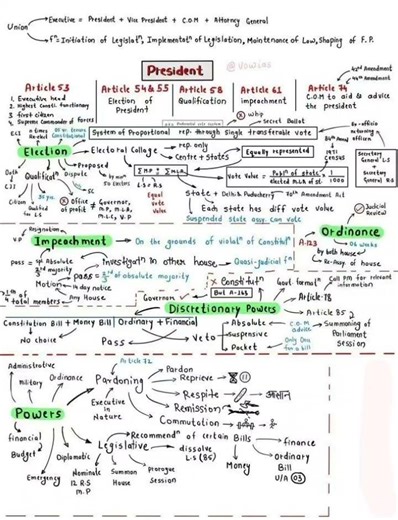 Union
Executive = President + Vice President + C.O.M + Attorney General
fⁿ = Initiation of Legislatⁿ, Implementatⁿ of Legislation, Maintenance of Law, Shaping of F.P.
President
@vowias
Article 53
1. Executive head
2. Highest Constⁿ functionary
3. first citizen
4. Supreme Commander of forces
Article 54 & 55
Election of
President
Article 58
Qualification
Article 61
impeachment
whip
Secret Ballot
Article 74
C.O.M to aid & advice
the president
42nd Amendment
44th Amendment
System of Proportional rep. through Single transferable vote
Election
Electoral Collage
rep. only
Centre + states
Equally represented
1971
Census
Ex-officio
returning officer
Secretary
General L.S
Secretary
General R.S
Oath
CJI
Qualificatⁿ
Dispute
SC
Proposed
Citizen
35
Qualified
for L.S
Office of
profit
≠ Governor,
MP, MLA,
MLC, VP
ΣMP = ΣMLA
L.S + R.S
Equal
vote
Value
Vote Value = Publⁿ of state / elected MLA of st. × 1/1000
State + Delhi & Puducherry
70th Amendment Act
Each state has diff vote value
Suspended state assy can vote
Judicial
Review
Ordinance
A-123
06 weeks
by both house
Re-Assy. of house
Resignation
V.P
Impeachment
On the grounds of violatⁿ of Constitutⁿ
pass = 2/3rd absolute
majority
investigatⁿ in other house
Quasi-judicial fⁿ
Motion
14 day notice
pass = 2/3rd of absolute majority
1/4th of
total members
Any House
× Constitutⁿ
But A-163
Governor
Govt formatⁿ
Call PM for relevant
information
Article-78
Discretionary Powers
Article 85
Summoning of
Parliament
Session
Constitution Bill + Money Bill
Ordinary + Financial
No choice
Pass
Veto
Absolute
Suspensive
Pocket
C.O.M
advice
Only Once
for a bill
Article 72
Administrative
Military
Ordinance
Powers
financial
Budget
Emergency
Diplomatic
Pardoning
Executive
in
Nature
Pardon
Reprieve
Respite
Remission
Commutation
Legislative
Recommendⁿ of certain Bills
dissolve
L.S (85)
Nominate
12 R.S
M.P
Summon
House
prorogue
Session
Money
finance
ordinary
Bill
U/A 03